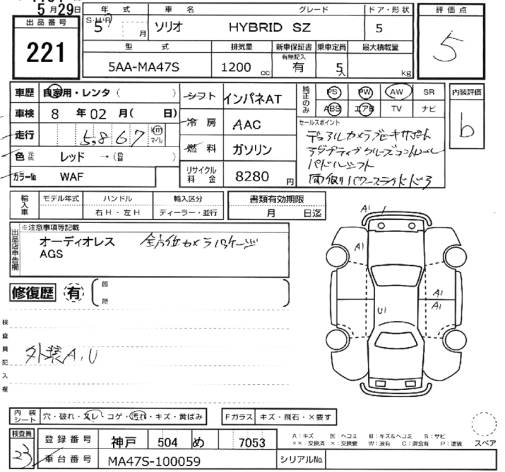 5月29日
出品番号
221
年式 車名 グレード ドア・形状
5 月 ソリオ HYBRID SZ 5
型式 排気量 新車保証書 乗車定員 最大積載量
5AA-MA47S 1200 cc 有無記入 有 5人 kg
評価点
5
車歴 自家用・レンタ ( )
車検 8年 02月 ( 日)
走行 5,867 km マイル
色 レッド → ( )
カラーNo WAF
シフト インパネAT
冷房 AAC
燃料 ガソリン
リサイクル料金 8280円
純正のみ PS PW AW SR
ABS エアB TV ナビ
セールスポイント
デュアルカメラブレーキサポート
アダプティブクルーズコントロール
パドルシフト
両側パワースライドドア
内装評価
b
輸入車 モデル年式 ハンドル 輸入区分 書類有効期限
年 右H・左H ディーラー・並行 月 日迄
出品店申告欄
※注意事項等記載
オーディオレス 全方位カメラパッケージ
AGS
修復歴 有
検査員記入欄
外装A,U
A1
A1
A1
U1
内装シート 穴・破れ・スレ・コゲ・汚れ・キズ・黄ばみ
Fガラス キズ・飛石・×要す
検査番
23
登録番号 神戸 504 め 7053
車台番号 MA47S-100059
シリアルNo.
スペア